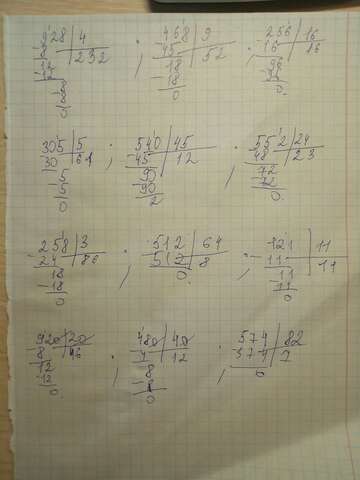 928 | 4 ; 468 | 9 ; 256 | 16
-8 | 232 -45 | 52 -16 | 16
12 18 96
-12 -18 -96
8 0 0.
-8
0
305 | 5 ; 540 | 45 ; 552 | 24
30 | 61 -45 | 12 -48 | 23
5 90 72
-5 -90 -72
0 0.
258 | 3 ; 512 | 64 ; 121 | 11
-24 | 86 512 | 8 -11 | 11
18 0. 11
-18 -11
0 0
920 | 20 ; 480 | 40 ; 574 | 82
-8 | 46 4 | 12 574 | 7
12 8 0
-12 -8
0. 0